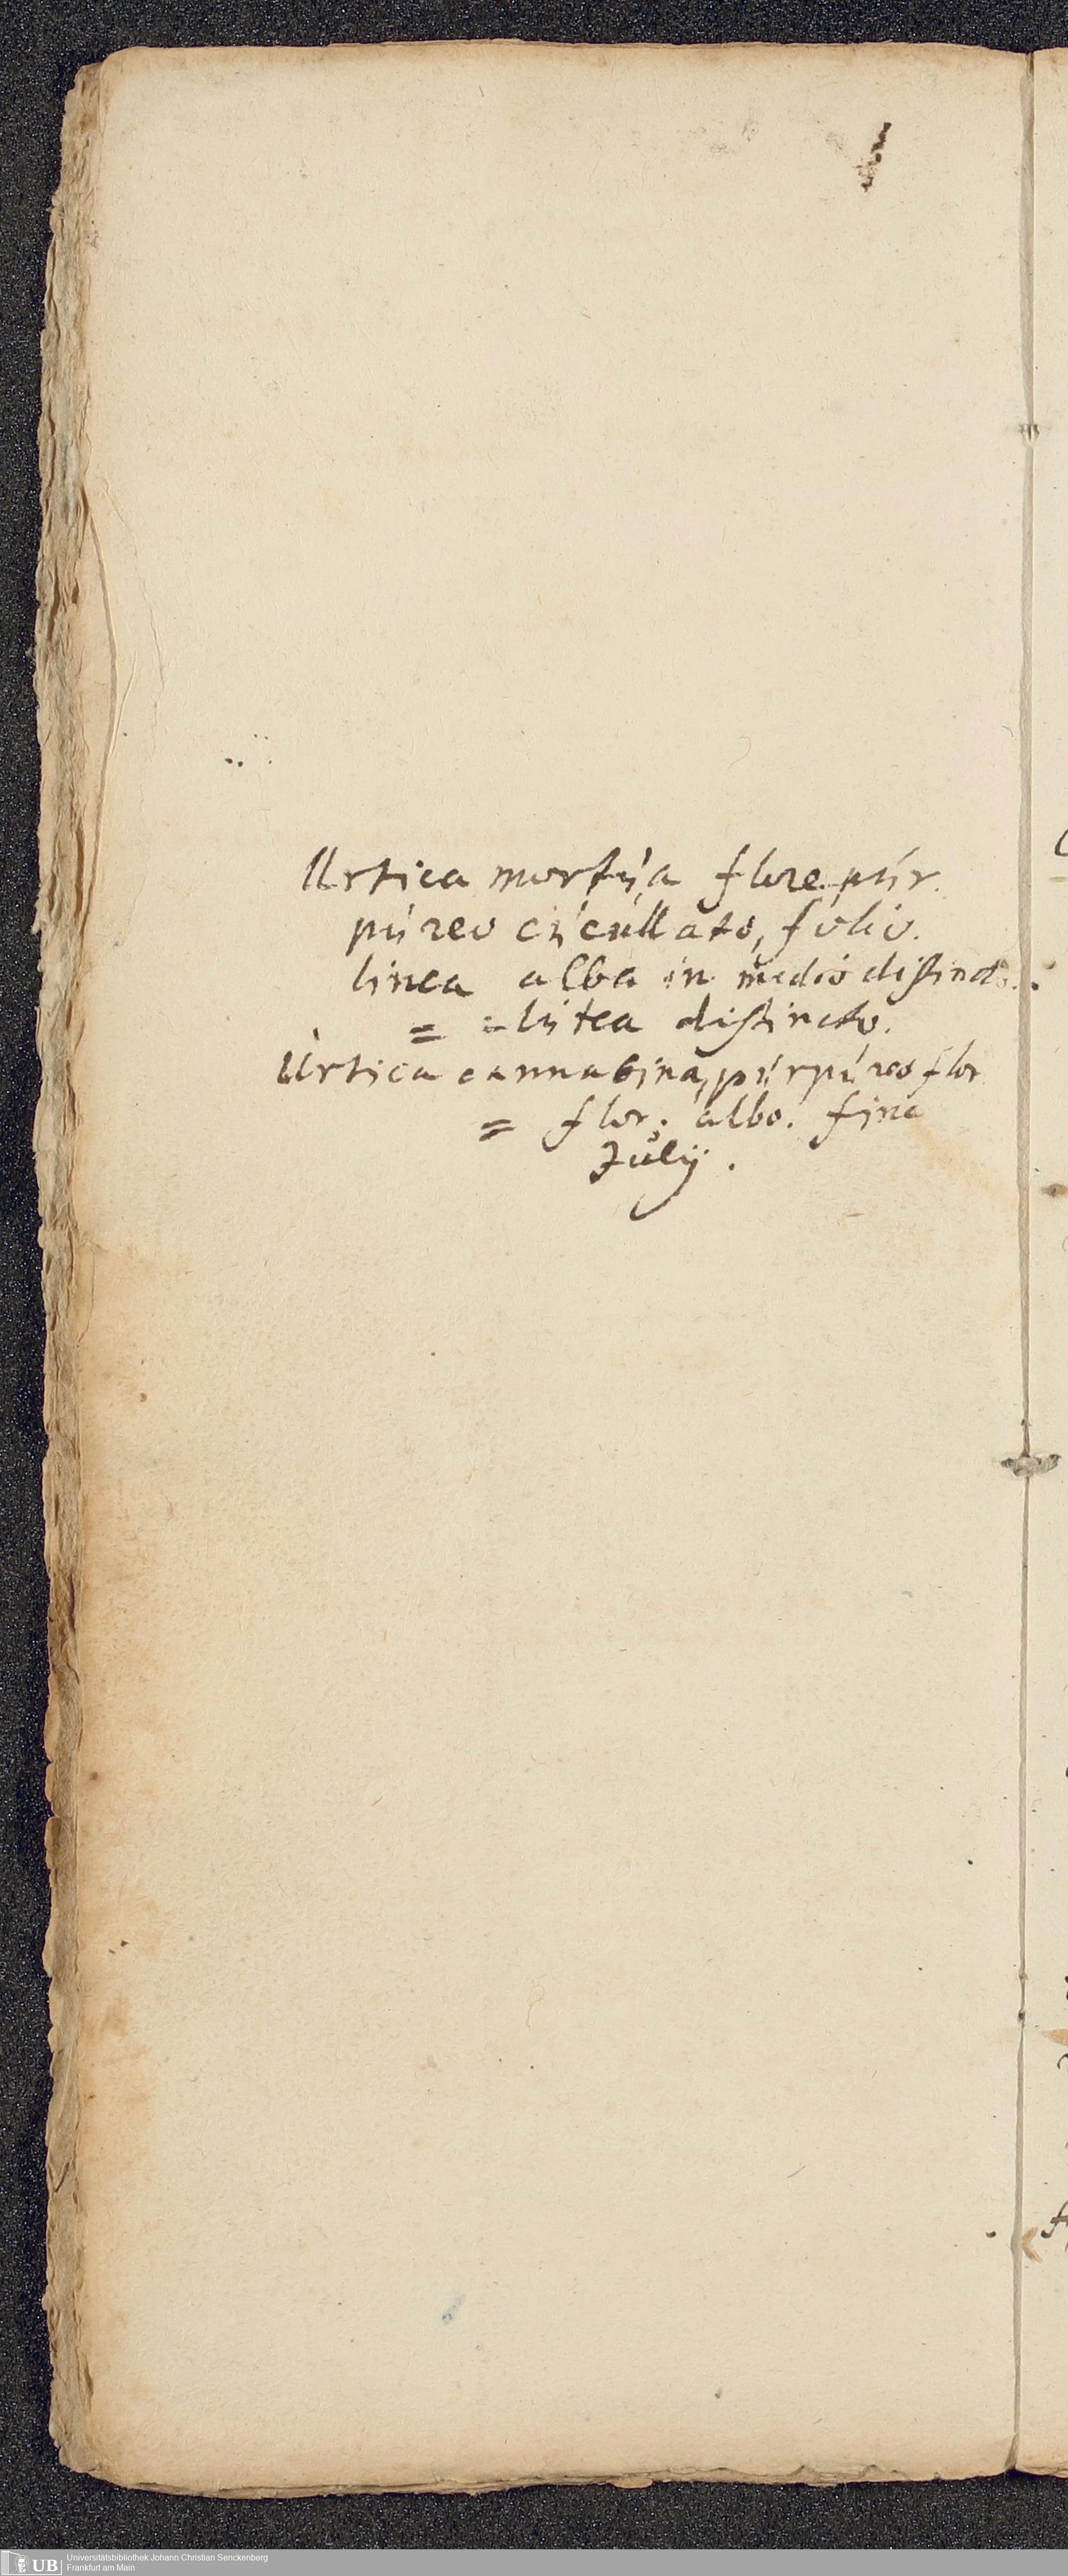 Urtica mortua flore pur
pureo cucullato, folio.
linea alba in medio distincto.
= = lutea distincto.
Urtica cannabina, purpureo flor
= flor. albo. fine
Julij.
UB Universitätsbibliothek Johann Christian Senckenberg
Frankfurt am Main